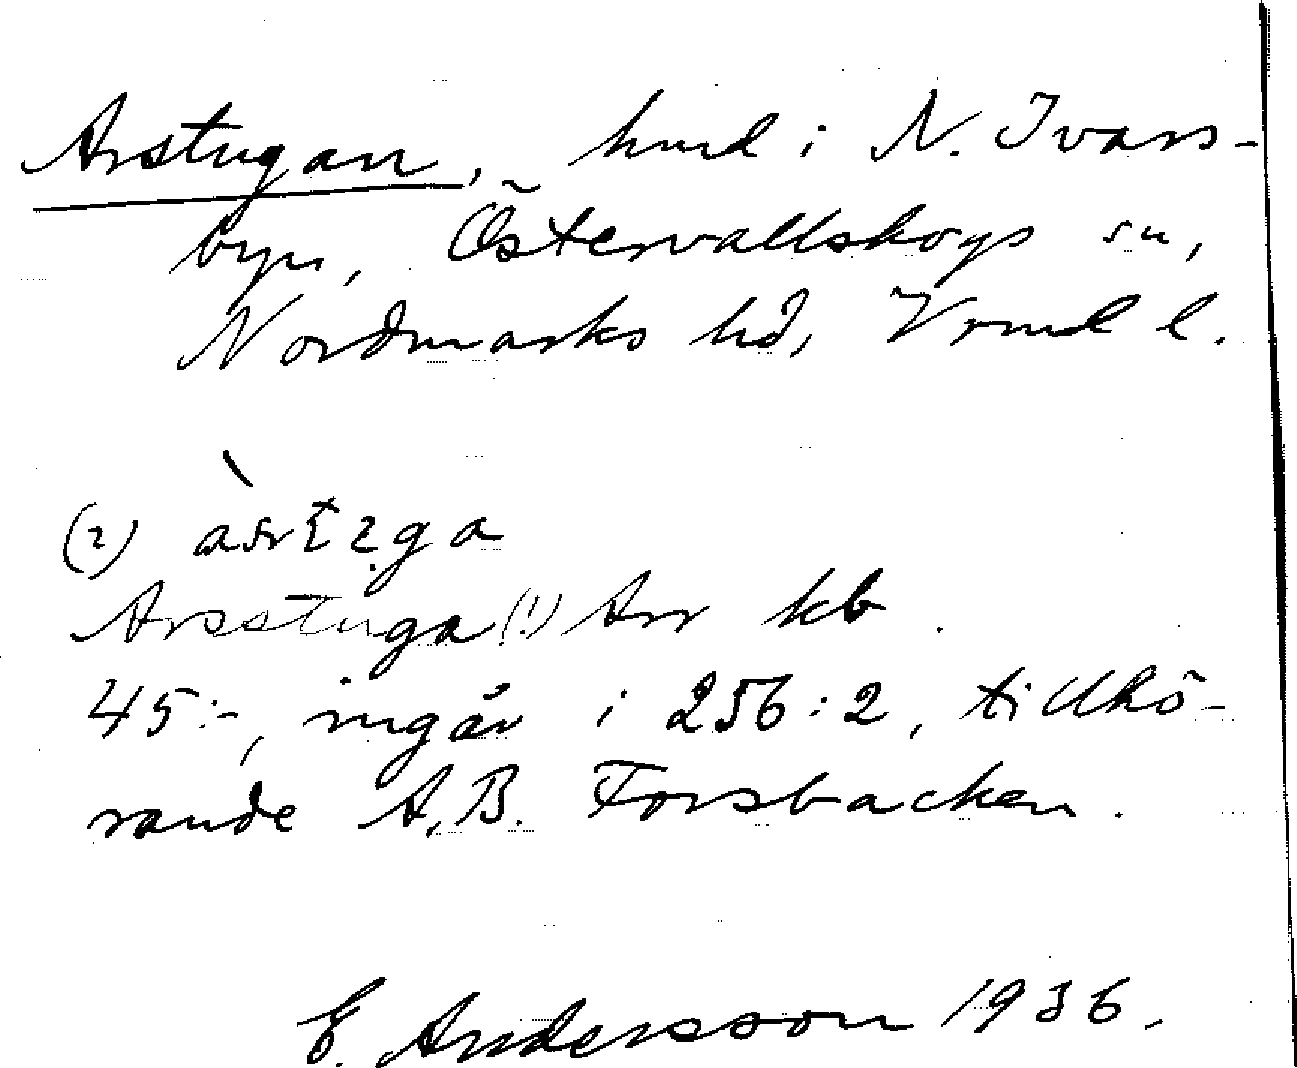 Arstugan, hmd i N. Ivars-
byn, Östervallskogs sn,
Nordmarks hd, Vrml l.
(2)
Arsstuga (!) Arr kb
45:-, ingår i 256:2, tillhö-
rande A.B. Forsbacken.
E. Andersson 1936.